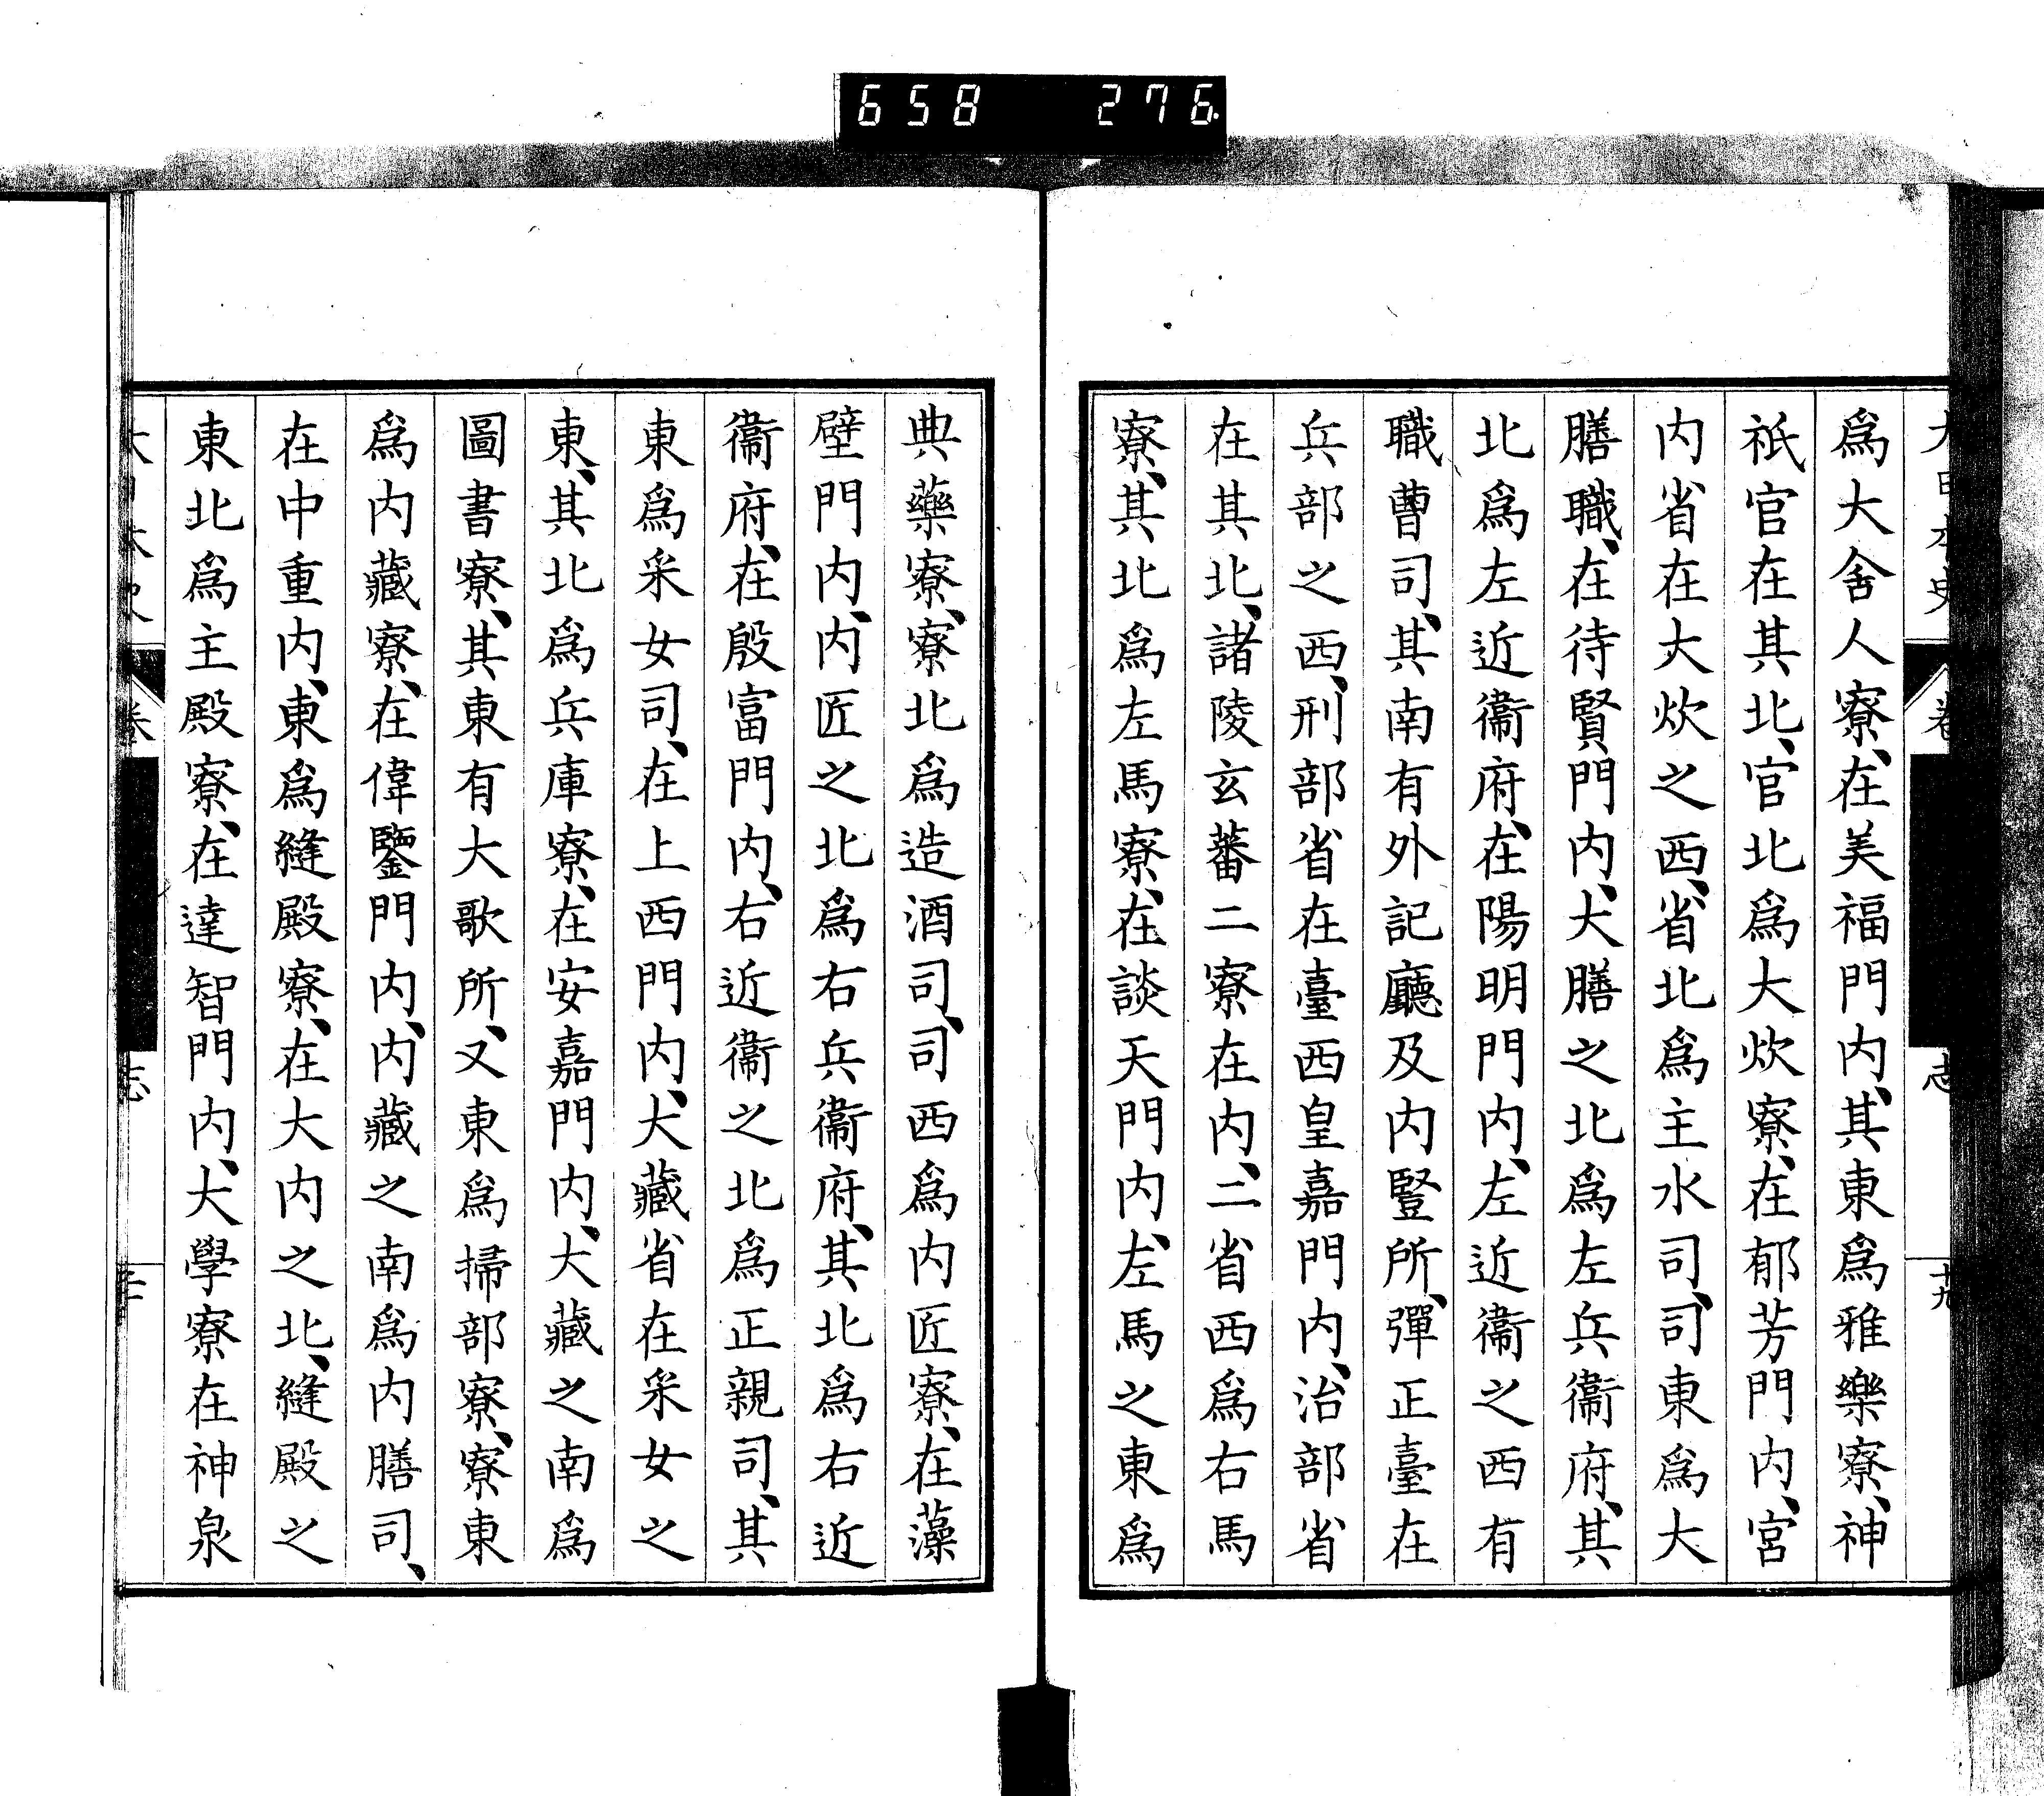 658 276
大日本史 卷 志 十九
爲大舍人寮、在美福門内、其東爲雅樂寮、神
祇官在其北、官北爲大炊寮、在郁芳門内、宮
内省在大炊之西、省北爲主水司、司東爲大
膳職、在待賢門内、大膳之北爲左兵衞府、其
北爲左近衞府、在陽明門内、左近衞之西有
職曹司、其南有外記廳及内豎所、彈正臺在
兵部之西、刑部省在臺西皇嘉門内、治部省
在其北、諸陵玄蕃二寮在内、二省西爲右馬
寮、其北爲左馬寮、在談天門内、左馬之東爲
典藥寮、寮北爲造酒司、司西爲内匠寮、在藻
壁門内、内匠之北爲右兵衞府、其北爲右近
衞府、在殷富門内、右近衞之北爲正親司、其
東爲采女司、在上西門内、大藏省在采女之
東、其北爲兵庫寮、在安嘉門内、大藏之南爲
圖書寮、其東有大歌所、又東爲掃部寮、寮東
爲内藏寮、在偉鑒門内、内藏之南爲内膳司、
在中重内、東爲縫殿寮、在大内之北、縫殿之
東北爲主殿寮、在達智門内、大學寮在神泉
大日本史 卷 志